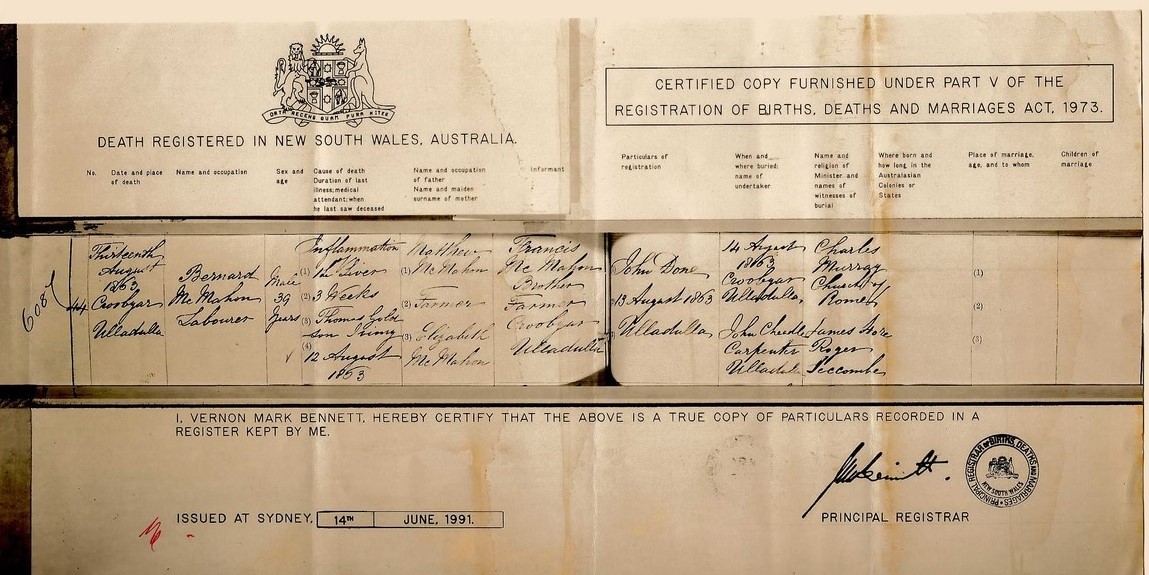 ORTA RECENS QUAM PURA NITES
DEATH REGISTERED IN NEW SOUTH WALES, AUSTRALIA.
CERTIFIED COPY FURNISHED UNDER PART V OF THE
REGISTRATION OF BIRTHS, DEATHS AND MARRIAGES ACT, 1973.
No.
Date and place
of death
Name and occupation
Sex and
age
Cause of death
Duration of last
illness; medical
attendant; when
he last saw deceased
Name and occupation
of father
Name and maiden
surname of mother
Informant
Particulars of
registration
When and
where buried;
name of
undertaker
Name and
religion of
Minister and
names of
witnesses of
burial
Where born and
how long in the
Australasian
Colonies or
States
Place of marriage,
age, and to whom
Children of
marriage
6087
44
Thirteenth
August
1863
Croobyar
Ulladulla
Bernard
McMahon
Labourer
Male
39
Years
Inflammation
(1) the Liver
(2) 3 Weeks
(3) Thomas Gold
(4)
12 August
1863
Matthew
(1) McMahon
(2) Farmer
(3) Elizabeth
McMahon
Francis
McMahon
Brother
Farmer
Croobyar
Ulladulla
John Done
13 August 1863
Ulladulla
14 August
1863
Croobyar
Ulladulla
John Cheedle
Carpenter
Ulladulla
Charles
Murray
Church of
Rome
James
Roger
Seccombe
(1)
(2)
(3)
I, VERNON MARK BENNETT, HEREBY CERTIFY THAT THE ABOVE IS A TRUE COPY OF PARTICULARS RECORDED IN A
REGISTER KEPT BY ME.
ISSUED AT SYDNEY, 14TH JUNE, 1991.
PRINCIPAL REGISTRAR
PRINCIPAL REGISTRAR OF BIRTHS, DEATHS AND MARRIAGES
NEW SOUTH WALES